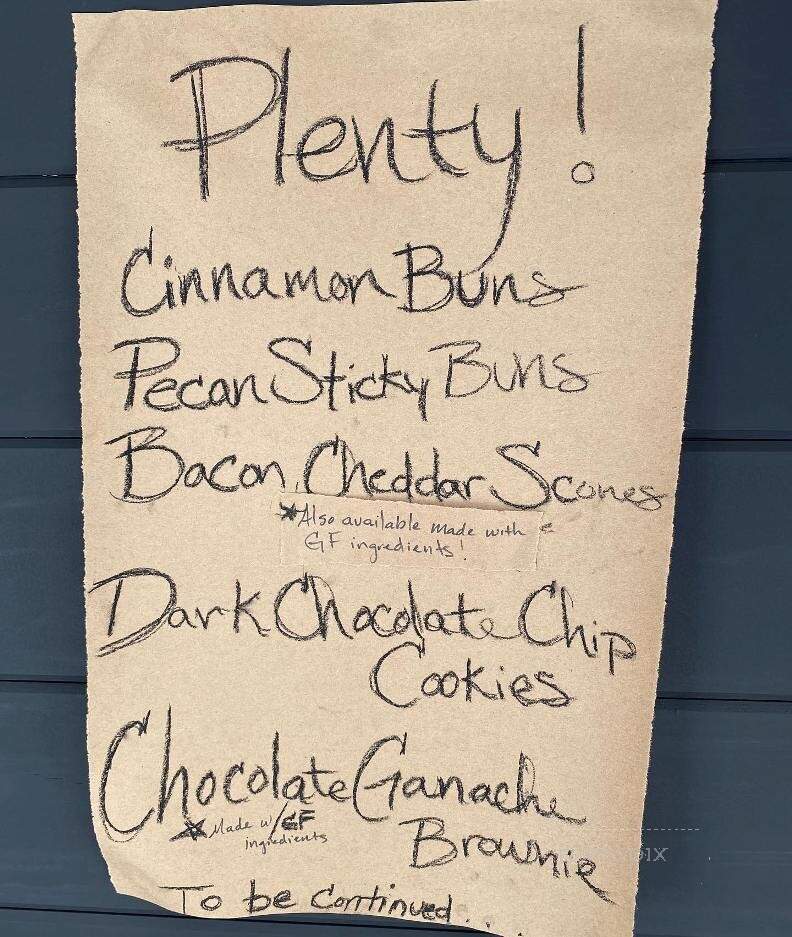 Plenty!
Cinnamon Buns
Pecan Sticky Buns
Bacon, Cheddar Scones
*Also available made with
GF ingredients!
Dark Chocolate Chip
Cookies
Chocolate Ganache
*Made w/ GF
ingredients
Brownie
To be continued...